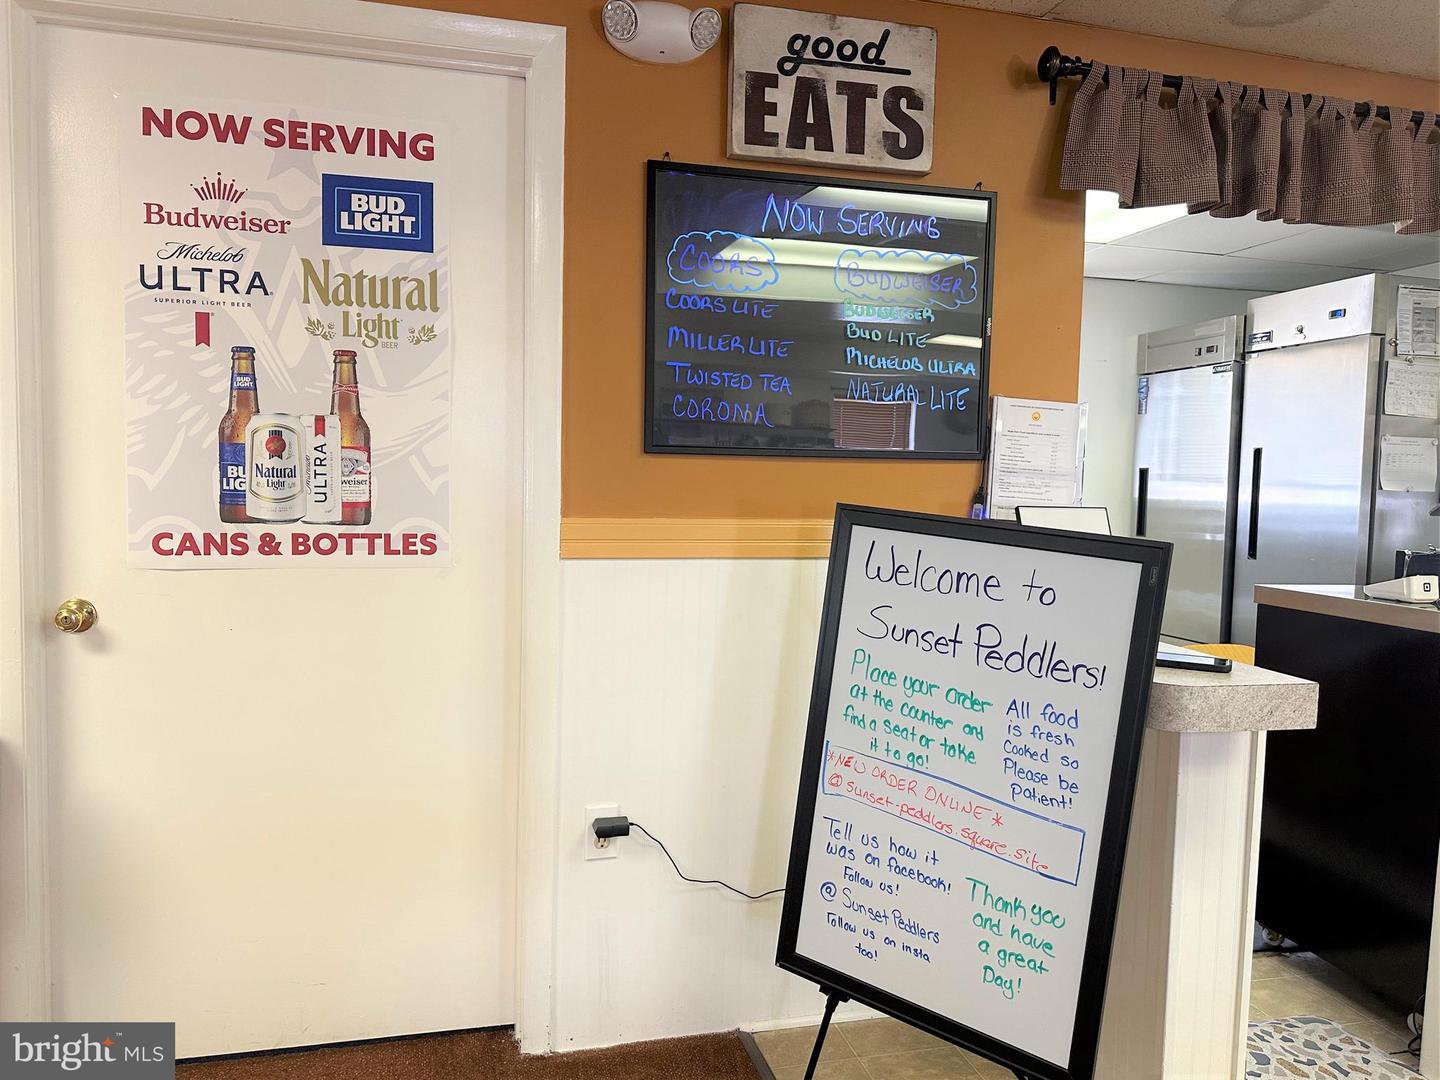 NOW SERVING
Budweiser
BUD
LIGHT
Michelob
ULTRA
SUPERIOR LIGHT BEER
Natural
Light
BEER
BUD
LIGHT
Natural
Light
ULTRA
CANS & BOTTLES
good
EATS
NOW SERVING
COORS
COORS LITE
MILLER LITE
TWISTED TEA
CORONA
BUDWEISER
BUDWEISER
BUD LITE
MICHELOB ULTRA
NATURAL LITE
Welcome to
Sunset Peddlers!
Place your order
at the counter and
find a seat or take
it to go!
All food
is fresh
Cooked so
Please be
patient!
*NEW ORDER ONLINE*
@ sunset-peddlers.square.site
Tell us how it
was on facebook!
Follow us!
@ Sunset Peddlers
Follow us on insta
too!
Thank you
and have
a great
Day!
bright™ MLS